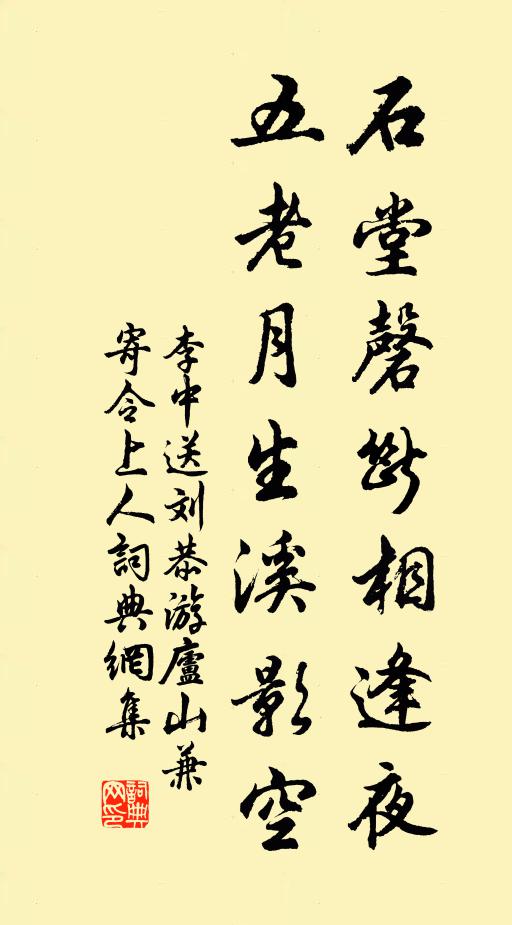 石堂磬斷相逢夜
五老月生溪影空
李中送刘恭游廬山兼
寄令上人詞典網集
詞典
网印